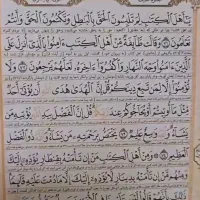 يَٰٓأَهْلَ ٱلْكِتَٰبِ لِمَ تَلْبِسُونَ ٱلْحَقَّ بِٱلْبَٰطِلِ وَتَكْتُمُونَ ٱلْحَقَّ وَأَنتُمْ
تَعْلَمُونَ ۝ وَقَالَت طَّآئِفَةٌ مِّنْ أَهْلِ ٱلْكِتَٰبِ ءَامِنُوا۟ بِٱلَّذِىٓ أُنزِلَ عَلَى
ٱلَّذِينَ ءَامَنُوا۟ وَجْهَ ٱلنَّهَارِ وَٱكْفُرُوٓا۟ ءَاخِرَهُۥ لَعَلَّهُمْ يَرْجِعُونَ
۝ وَلَا تُؤْمِنُوٓا۟ إِلَّا لِمَن تَبِعَ دِينَكُمْ قُلْ إِنَّ ٱلْهُدَىٰ هُدَى ٱللَّهِ أَن يُؤْتَىٰٓ أَحَدٌ
مِّثْلَ مَآ أُوتِيتُمْ أَوْ يُحَآجُّوكُمْ عِندَ رَبِّكُمْ قُلْ إِنَّ ٱلْفَضْلَ بِيَدِ ٱللَّهِ يُؤْتِيهِ مَن
يَشَآءُ وَٱللَّهُ وَٰسِعٌ عَلِيمٌ ۝ يَخْتَصُّ بِرَحْمَتِهِۦ مَن يَشَآءُ وَٱللَّهُ ذُو ٱلْفَضْلِ
ٱلْعَظِيمِ ۝ وَمِنْ أَهْلِ ٱلْكِتَٰبِ مَنْ إِن تَأْمَنْهُ بِقِنطَارٍ يُؤَدِّهِۦٓ إِلَيْكَ
وَمِنْهُم مَّنْ إِن تَأْمَنْهُ بِدِينَارٍ لَّا يُؤَدِّهِۦٓ إِلَيْكَ إِلَّا مَا دُمْتَ عَلَيْهِ قَآئِمًا